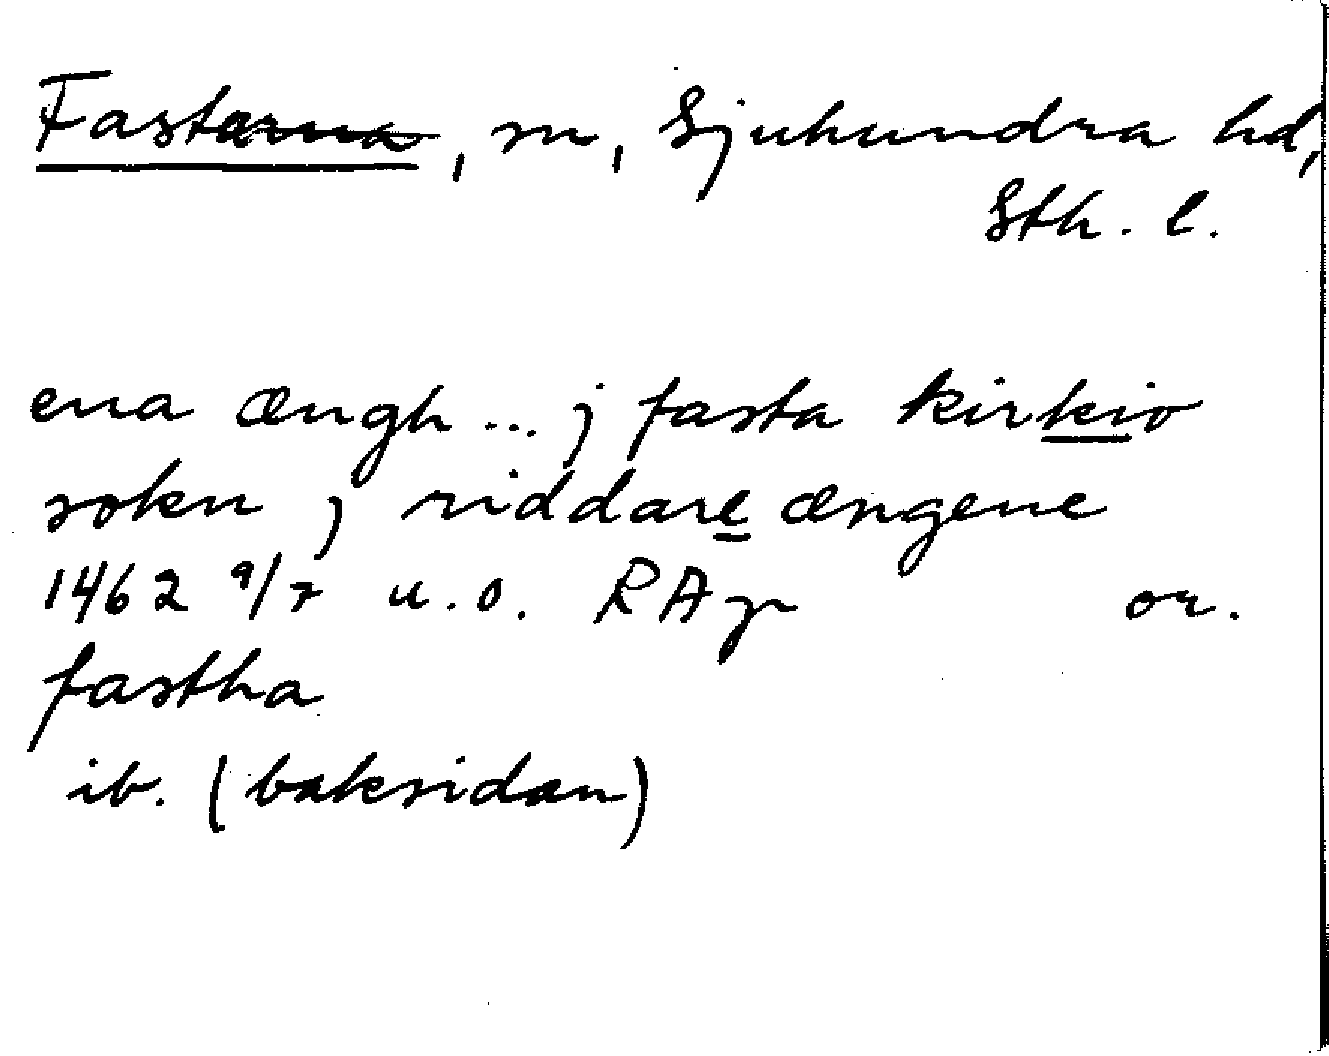 Fasterna, sn, Sjuhundra hd,
Sth. l.
ena ængh ... j fasta kirkio
sokn j riddare ængene
1462 9/7 u.o. RAp or.
fastha
ib. (baksidan)